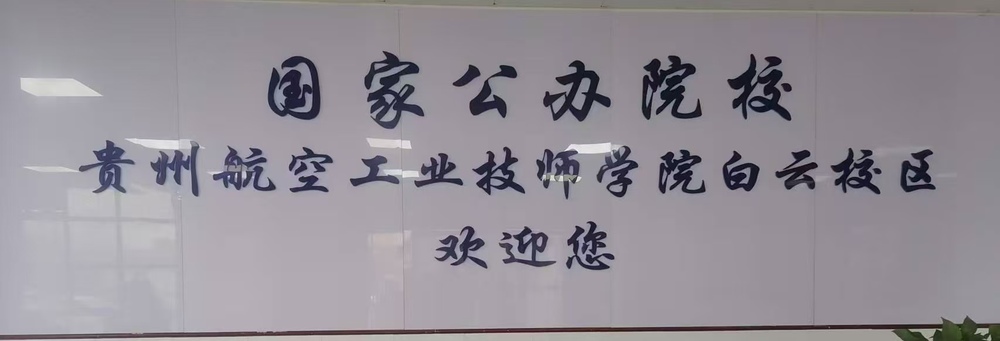 国家公办院校
贵州航空工业技师学院白云校区
欢迎您